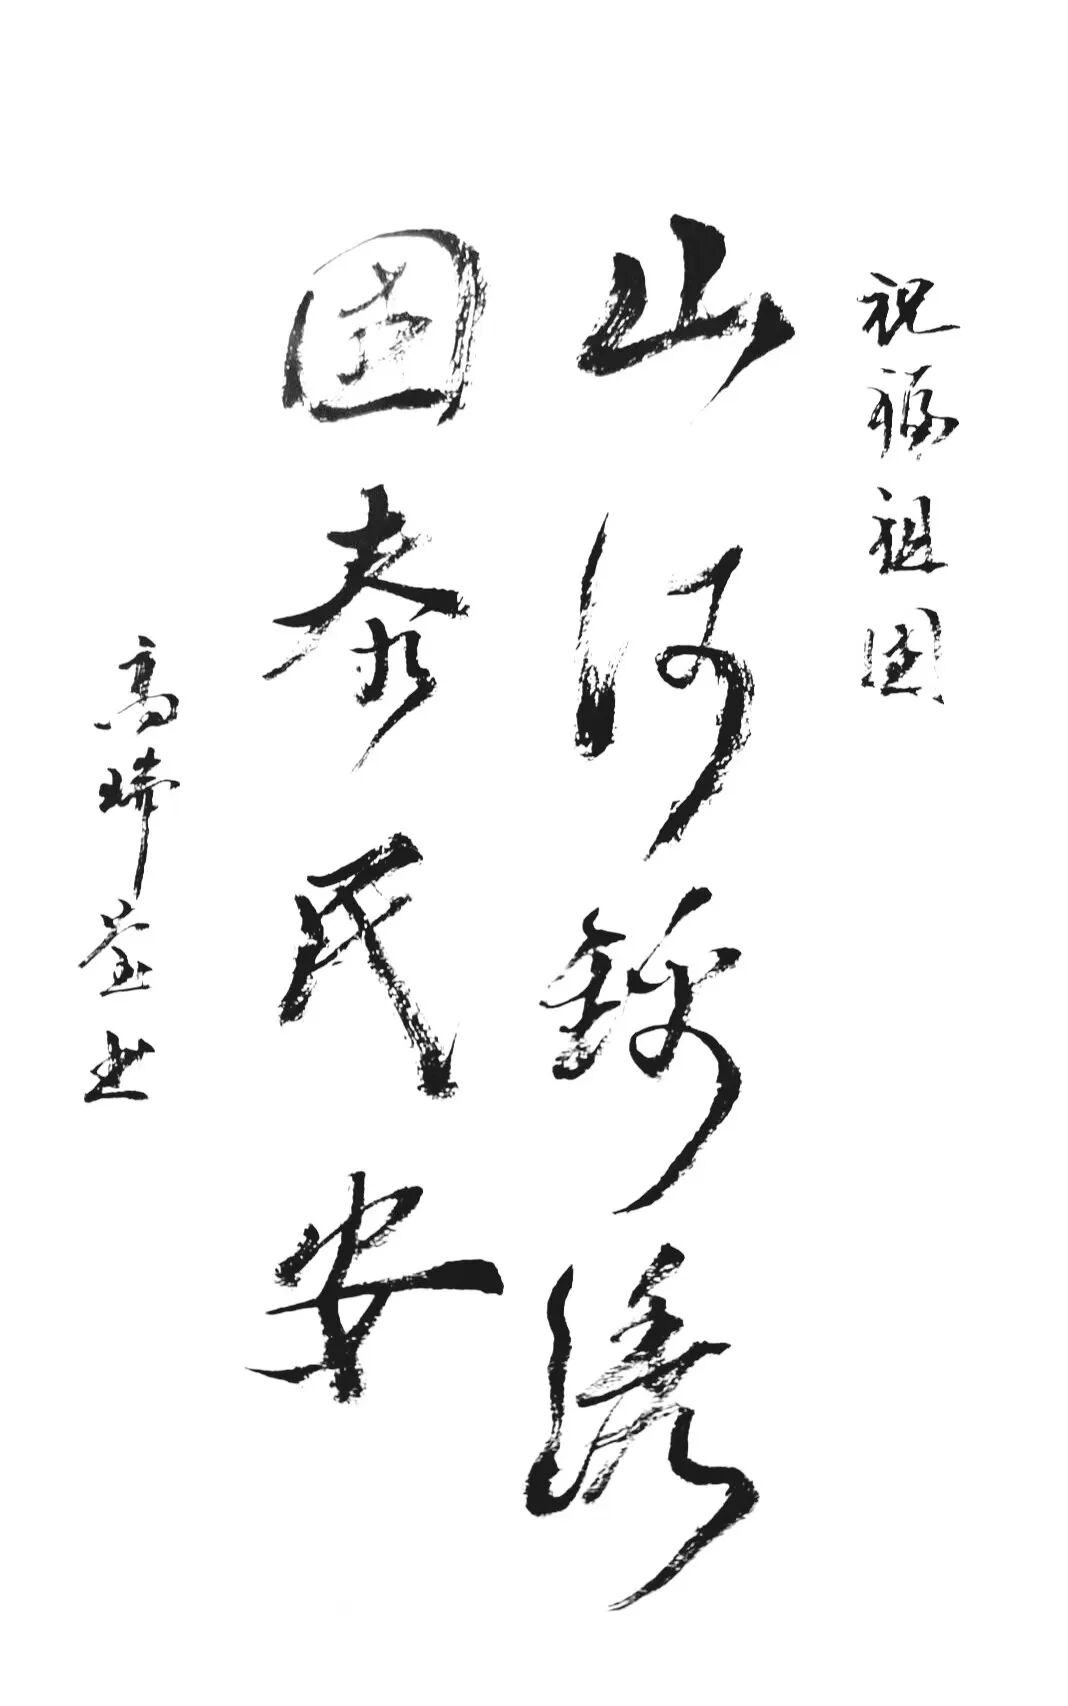 祝福祖国
山河锦绣
国泰民安
高 书